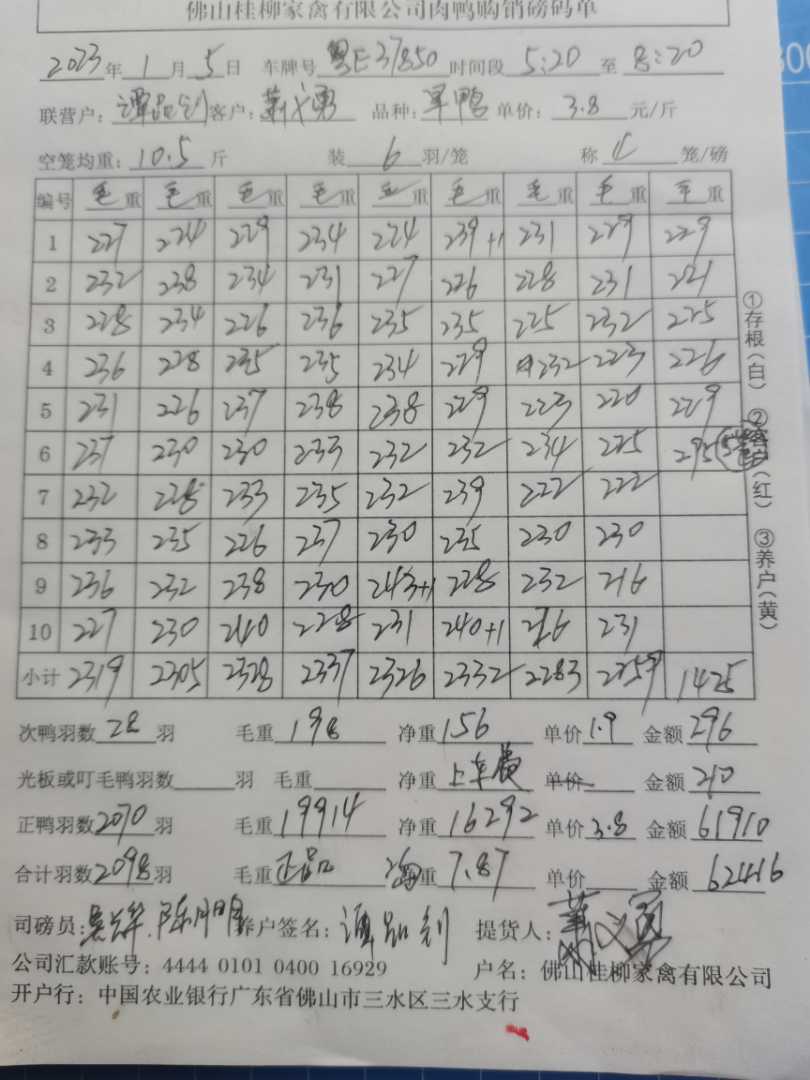 佛山桂柳家禽有限公司肉鸭购销磅码单
2023年 1月 5日 车牌号 粤E37850 时间段 5:20 至 8:20
联营户: 谭品钊 客户: 品种: 单价: 3.8 元/斤
空笼均重: 10.5 斤 装 6 羽/笼 称 4 笼/磅
编号 毛重 毛重 毛重 毛重 毛重 毛重 毛重 毛重 毛重
1 227 224 229 234 224 239+1 231 229 229
2 232 238 234 231 227 226 228 231 221
3 228 234 226 236 235 235 225 232 225
4 236 228 235 235 234 229 232 223 226
5 231 226 237 238 238 229 223 220 229
6 237 230 230 233 232 232 234 225 295
7 232 228 233 235 232 239 222 222
8 233 235 226 237 230 235 230 230
9 236 232 238 230 243+1 228 232 216
10 227 230 240 228 231 240+1 226 231
小计 2319 2305 2328 2337 2326 2332 2283 2259 1425
次鸭羽数 28 羽 毛重 198 净重 156 单价 1.9 金额 296
光板或叮毛鸭羽数 羽 毛重 净重 上车费 单价 金额 210
正鸭羽数 2070 羽 毛重 19914 净重 16292 单价 3.8 金额 61910
合计羽数 2098 羽 毛重 正品 均重 7.87 单价 金额 62416
司磅员: 养户签名: 谭品钊 提货人:
公司汇款账号: 4444 0101 0400 16929 户名: 佛山桂柳家禽有限公司
开户行: 中国农业银行广东省佛山市三水区三水支行
①存根(白) ②客户(红) ③养户(黄)